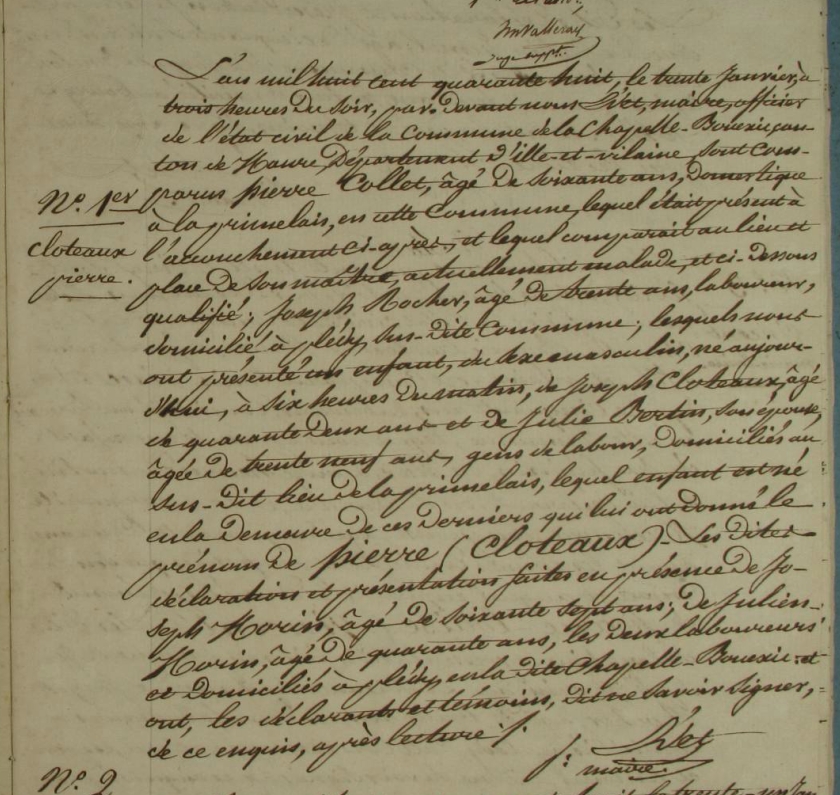 L'an mil huit cent quarante huit, le trente Janvier, à
trois heures du soir, par-devant nous Livet, maire, officier
de l'état civil de la Commune de la Chapelle-Bouexic, can-
ton de Maure, Département d'ille-et-vilaine, sont Com-
parus pierre Collet, âgé de soixante ans, domestique
à la primelais, en cette Commune, lequel était présent à
l'accouchement ci-après, et lequel comparait au lieu et
place de son maître, actuellement malade, et ci-dessous
qualifié; Joseph Rocher, âgé de trente ans, laboureur,
domicilié à plédy, sus-dite Commune; lesquels nous
ont présenté un enfant, du sexe masculin, né aujour-
d'hui, à six heures du matin, de Joseph Cloteaux, âgé
de quarante deux ans et de Julie Bertin, son épouse,
âgée de trente neuf ans, gens de labour, domiciliés au
sus-dit lieu de la primelais, lequel enfant est né
en la demeure de ces derniers qui lui ont donné le
prénom de pierre (Cloteaux). Les dites
déclaration et présentation faites en présence de Jo-
seph Morin, âgé de soixante sept ans; de Julien
Morin, âgé de quarante ans, les deux laboureurs
et domiciliés à plédy en la dite Chapelle-Bouexic et
ont, les déclarants et témoins, dit ne savoir signer,
de ce enquis, après lecture /.
Nº. 1er
Cloteaux
pierre.
maire
Nº. 2